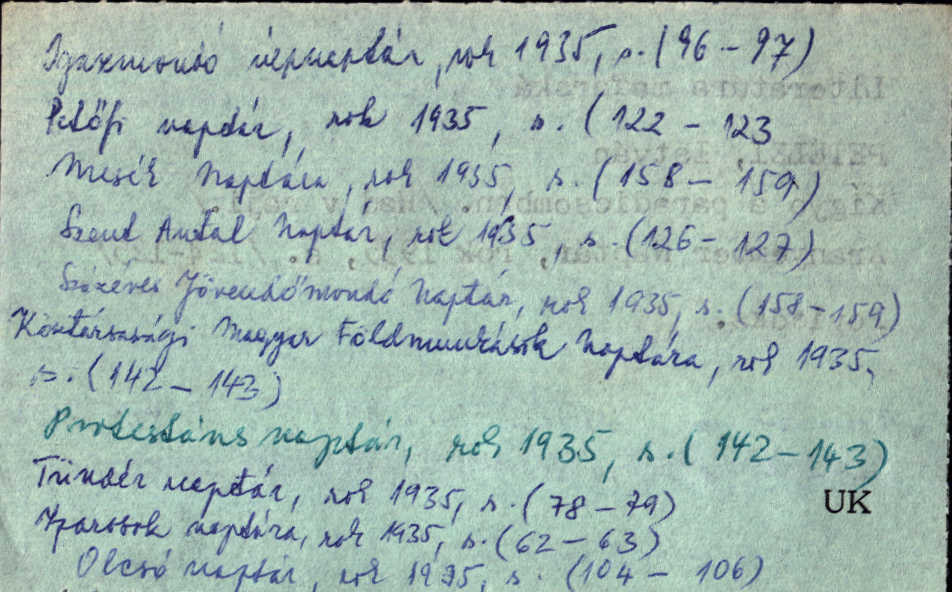 Igazmondó népnaptár, rok 1935, s. (96-97)
Petőfi naptár, rok 1935, s. (122 - 123
Mesék Naptára, rok 1935, s. (158 - 159)
Szent Antal Naptár, rok 1935, s. (126-127)
Százéves Jövendőmondó Naptár, rok 1935, s. (158-159)
Köztársasági Magyar Földmunkások Naptára, rok 1935,
s. (142 - 143)
Protestáns naptár, rok 1935, s. (142-143)
Tündér naptár, rok 1935, s. (78-79)
UK
Iparosok naptára, rok 1935, s. (62-63)
Olcsó naptár, rok 1935, s. (104 - 106)